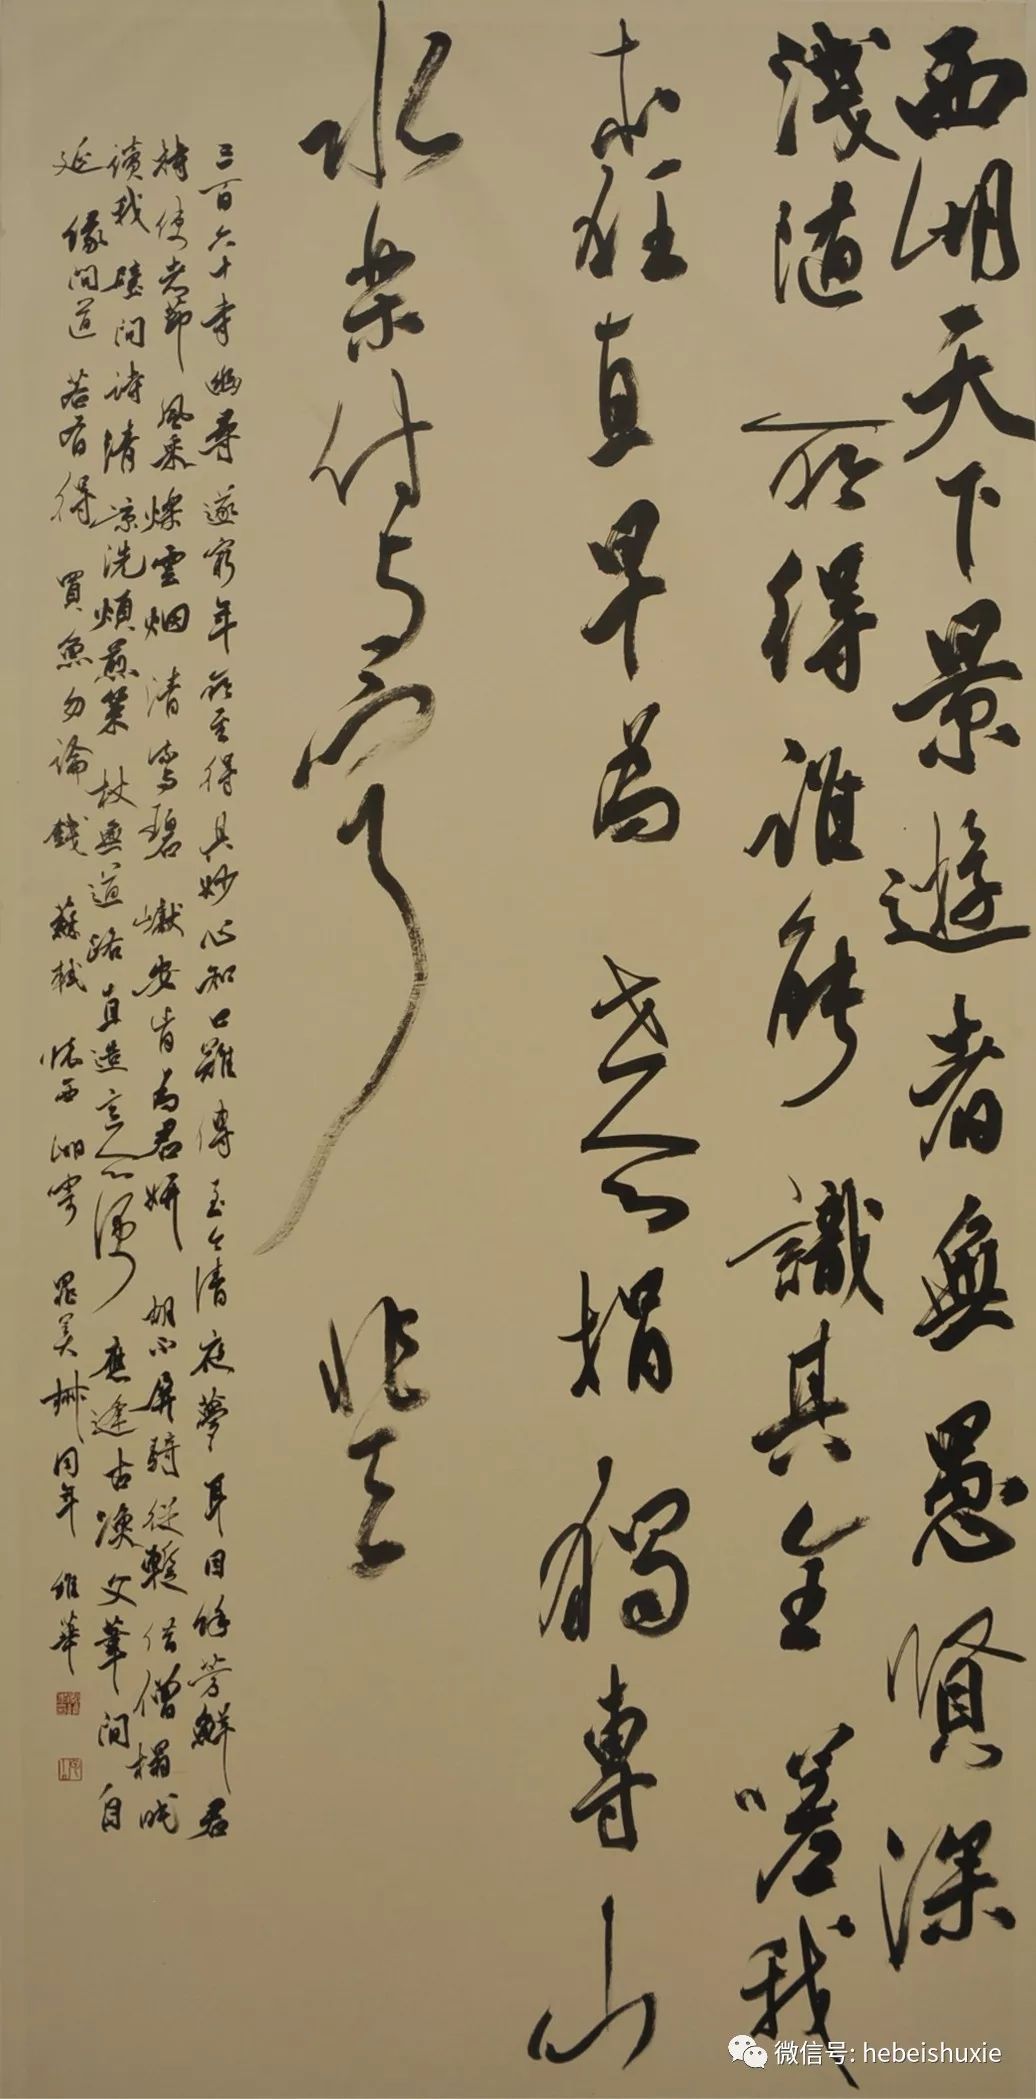 西湖天下景遊者無愚賢深
淺隨所得誰能識其全嗟我
本狂直早為世所捐獨專山
水樂付与寧非天
三百六十寺幽尋遂窮年所至得其妙心知口難傳至今清夜夢耳目餘芳鮮君
持使者節風采爍雲烟清流与碧巘安肯為君妍胡不屏騎從暫借僧榻眠
讀我壁間詩清凉洗煩煎策杖無道路直造意所便應逢古漁父葦間自
延緣問道若有得買魚勿論錢蘇軾懷西湖寄晁美叔同年維華
微信号: hebeishuxie